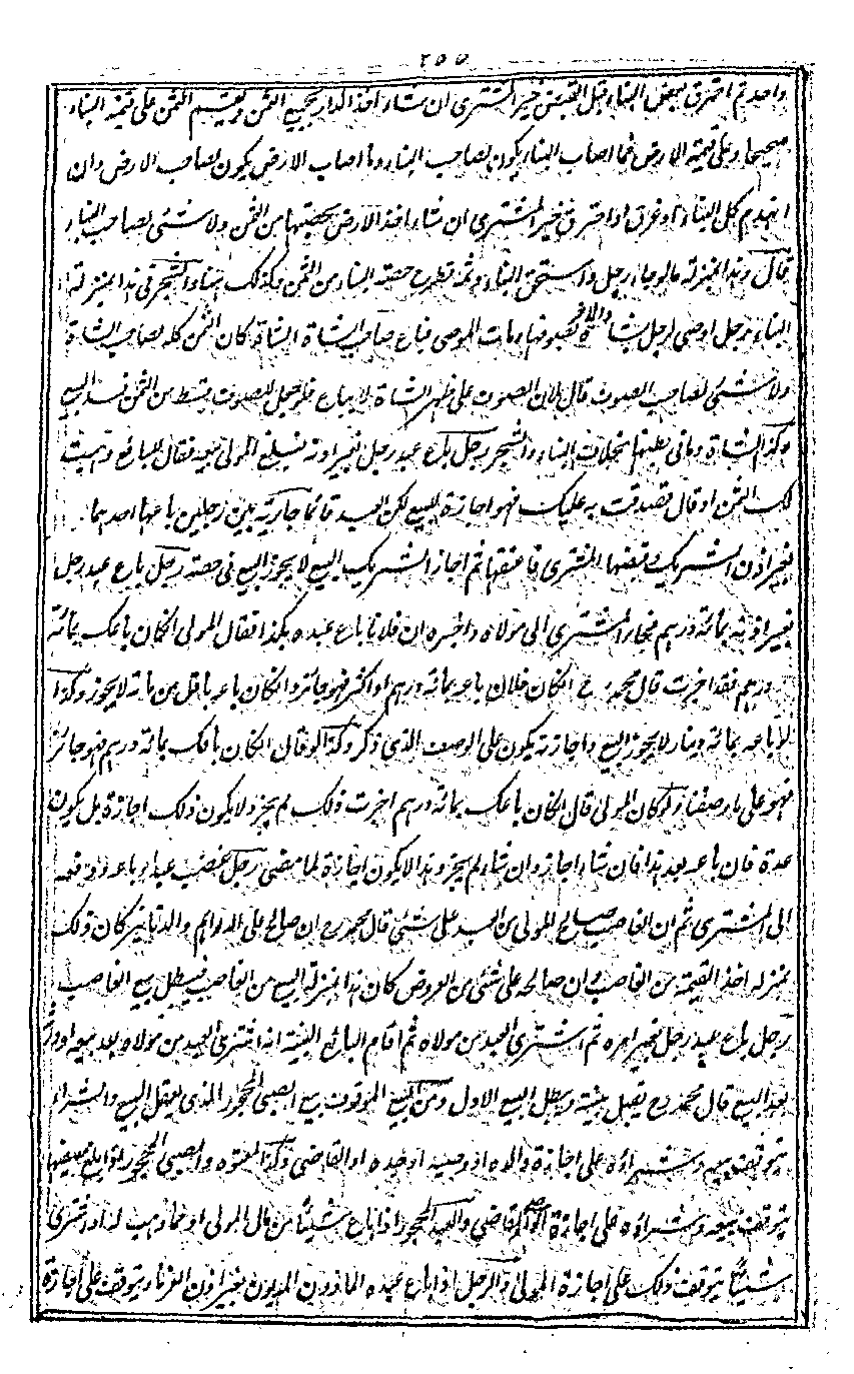 ٢٥٥
واحد ثم احترق بعض البناء قبل القبض خير المشترى ان شاء اخذ الدار بجميع الثمن ويقسم الثمن على قيمة البناء
صحيحا وعلى قيمة الارض فما اصاب البناء يكون لصاحب البناء وما اصاب الارض يكون لصاحب الارض وان
انهدم كل البناء او غرق او احترق خير المشترى ان شاء اخذ الارض بحصتها من الثمن ولا شئ لصاحب البناء
قال وهذا بمنزلة ما لو جاء رجل واستحق البناء وثمة تطرح حصة البناء من الثمن وكذلك البناء والشجر فى هذا بمنزلة
البناء رجل اوصى لرجل بشاة ولاخر بصوفها ومات الموصى فباع صاحب الشاة الشاة كان الثمن كله لصاحب الشاة
ولا شئ لصاحب الصوف قال لان الصوف على ظهر الشاة لا يباع فلو جعل للصوف قسط من الثمن فسد البيع
وكذا الشاة وما فى بطنها بخلاف البناء والشجر رجل باع عبد رجل بغير اذنه فبلغ المولى بيعه فقال للبائع وهبت
لك الثمن او قال تصدقت به عليك فهو اجازة للبيع لكن العبد قائما جارية بين رجلين باعها احدهما
بغير اذن الشريك وقبضها المشترى فاعتقها ثم اجاز الشريك البيع لا يجوز البيع فى حصته رجل باع عبد رجل
بغير اذنه بمائة درهم فجاء المشترى الى مولاه واخبره ان فلانا باع عبده بكذا فقال المولى ان كان باعك بمائة
درهم فقد اجزت قال محمد رح ان كان فلان باعه بمائة درهم او اكثر فهو جائز وان كان باعه باقل من مائة لا يجوز وكذا
لو باعه بمائة دينار لا يجوز البيع واجازته يكون على الوصف الذى ذكر وكذا لو قال ان كان باعك بمائة درهم فهو جائز
فهو على ما وصفنا ولو كان المولى قال ان كان باعك بمائة درهم اجزت ذلك لم يجز ولا يكون ذلك اجازة بل يكون
عدة فان باعه بعد هذا فان شاء اجاز وان شاء لم يجز وهذا لا يكون اجازة لما مضى رجل غصب عبدا وباعه ودفعه
الى المشترى ثم ان الغاصب صالح المولى من العبد على شئ قال محمد رح ان صالح على الدراهم والدنانير كان ذلك
بمنزلة اخذ القيمة من الغاصب وان صالحه على شئ من العروض كان هذا بمنزلة البيع من الغاصب فيبطل بيع الغاصب
رجل باع عبد رجل بغير امره ثم اشترى العبد من مولاه ثم اقام البائع البينة انه اشترى العبد من مولاه بعد بيعه
بعد البيع قال محمد رح يقبل بينته ويبطل البيع الاول ومن البيع الموقوف بيع الصبى المحجور الذى يعقل البيع والشراء
يتوقف بيعه وشراؤه على اجازة والده او وصيه او جده او القاضى وكذا المعتوه والصبى المحجور اذا بلغ سفيها
يتوقف بيعه وشراؤه على اجازة القاضى والعبد المحجور اذا باع شيئا من مال المولى او مما وهب له او اشترى
شيئا يتوقف ذلك على اجازة المولى والرجل اذا باع عبده الماذون المديون بغير اذن الغرماء يتوقف على اجازة